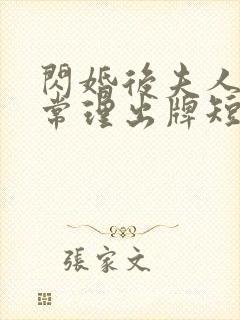 閃婚後夫人
常理出牌短
張家文